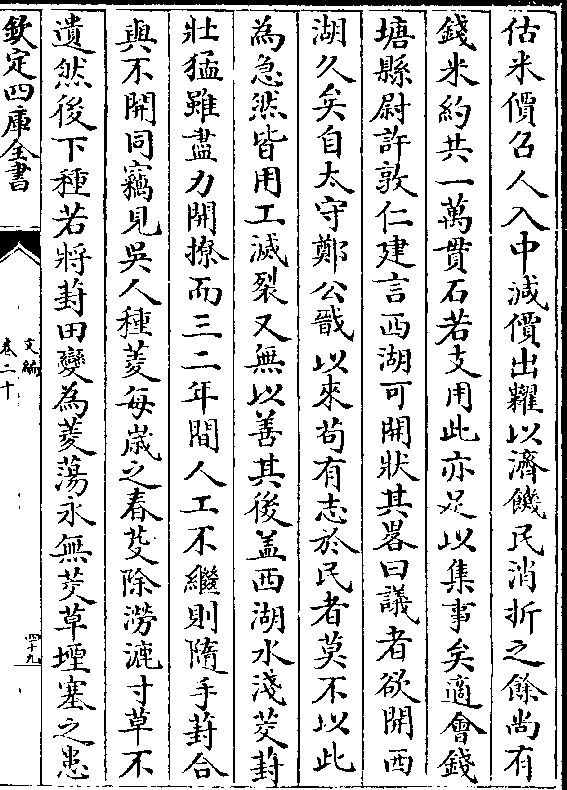 估米價召人入中減價出糶以濟饑民消折之餘尚有
錢米約共一萬貫石若支用此亦足以集事矣適會錢
塘縣尉許敦仁建言西湖可開狀其畧曰議者欲開西
湖久矣自太守鄭公戩以來苟有志於民者莫不以此
為急然皆用工滅裂又無以善其後盖西湖水淺茭葑
壯猛雖盡力開撩而三二年間人工不繼則隨手葑合
與不開同竊見吳人種菱每嵗之春芟除澇漉寸草不
遺然後下種若將葑田變為菱蕩永無茭草堙塞之患
欽定四庫全書
文編
卷二十
四十九